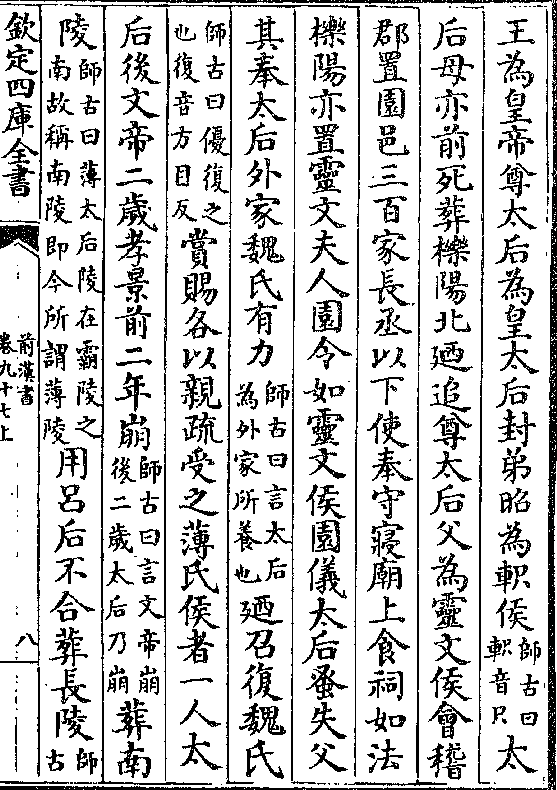 王為皇帝尊太后為皇太后封弟昭為軹侯師古曰軹音只太
后母亦前死葬櫟陽北廼追尊太后父為靈文侯會稽
郡置園邑三百家長丞以下使奉守寢廟上食祠如法
櫟陽亦置靈文夫人園令如靈文侯園儀太后蚤失父
其奉太后外家魏氏有力師古曰言太后為外家所養也廼召復魏氏
師古曰優復之也復音方目反賞賜各以親疏受之薄氏侯者一人太
后後文帝二歲孝景前二年崩師古曰言文帝崩後二歲太后乃崩葬南
陵師古曰薄太后陵在霸陵之南故稱南陵即今所謂薄陵用呂后不合葬長陵師古
欽定四庫全書
前漢書
卷九十七上
八